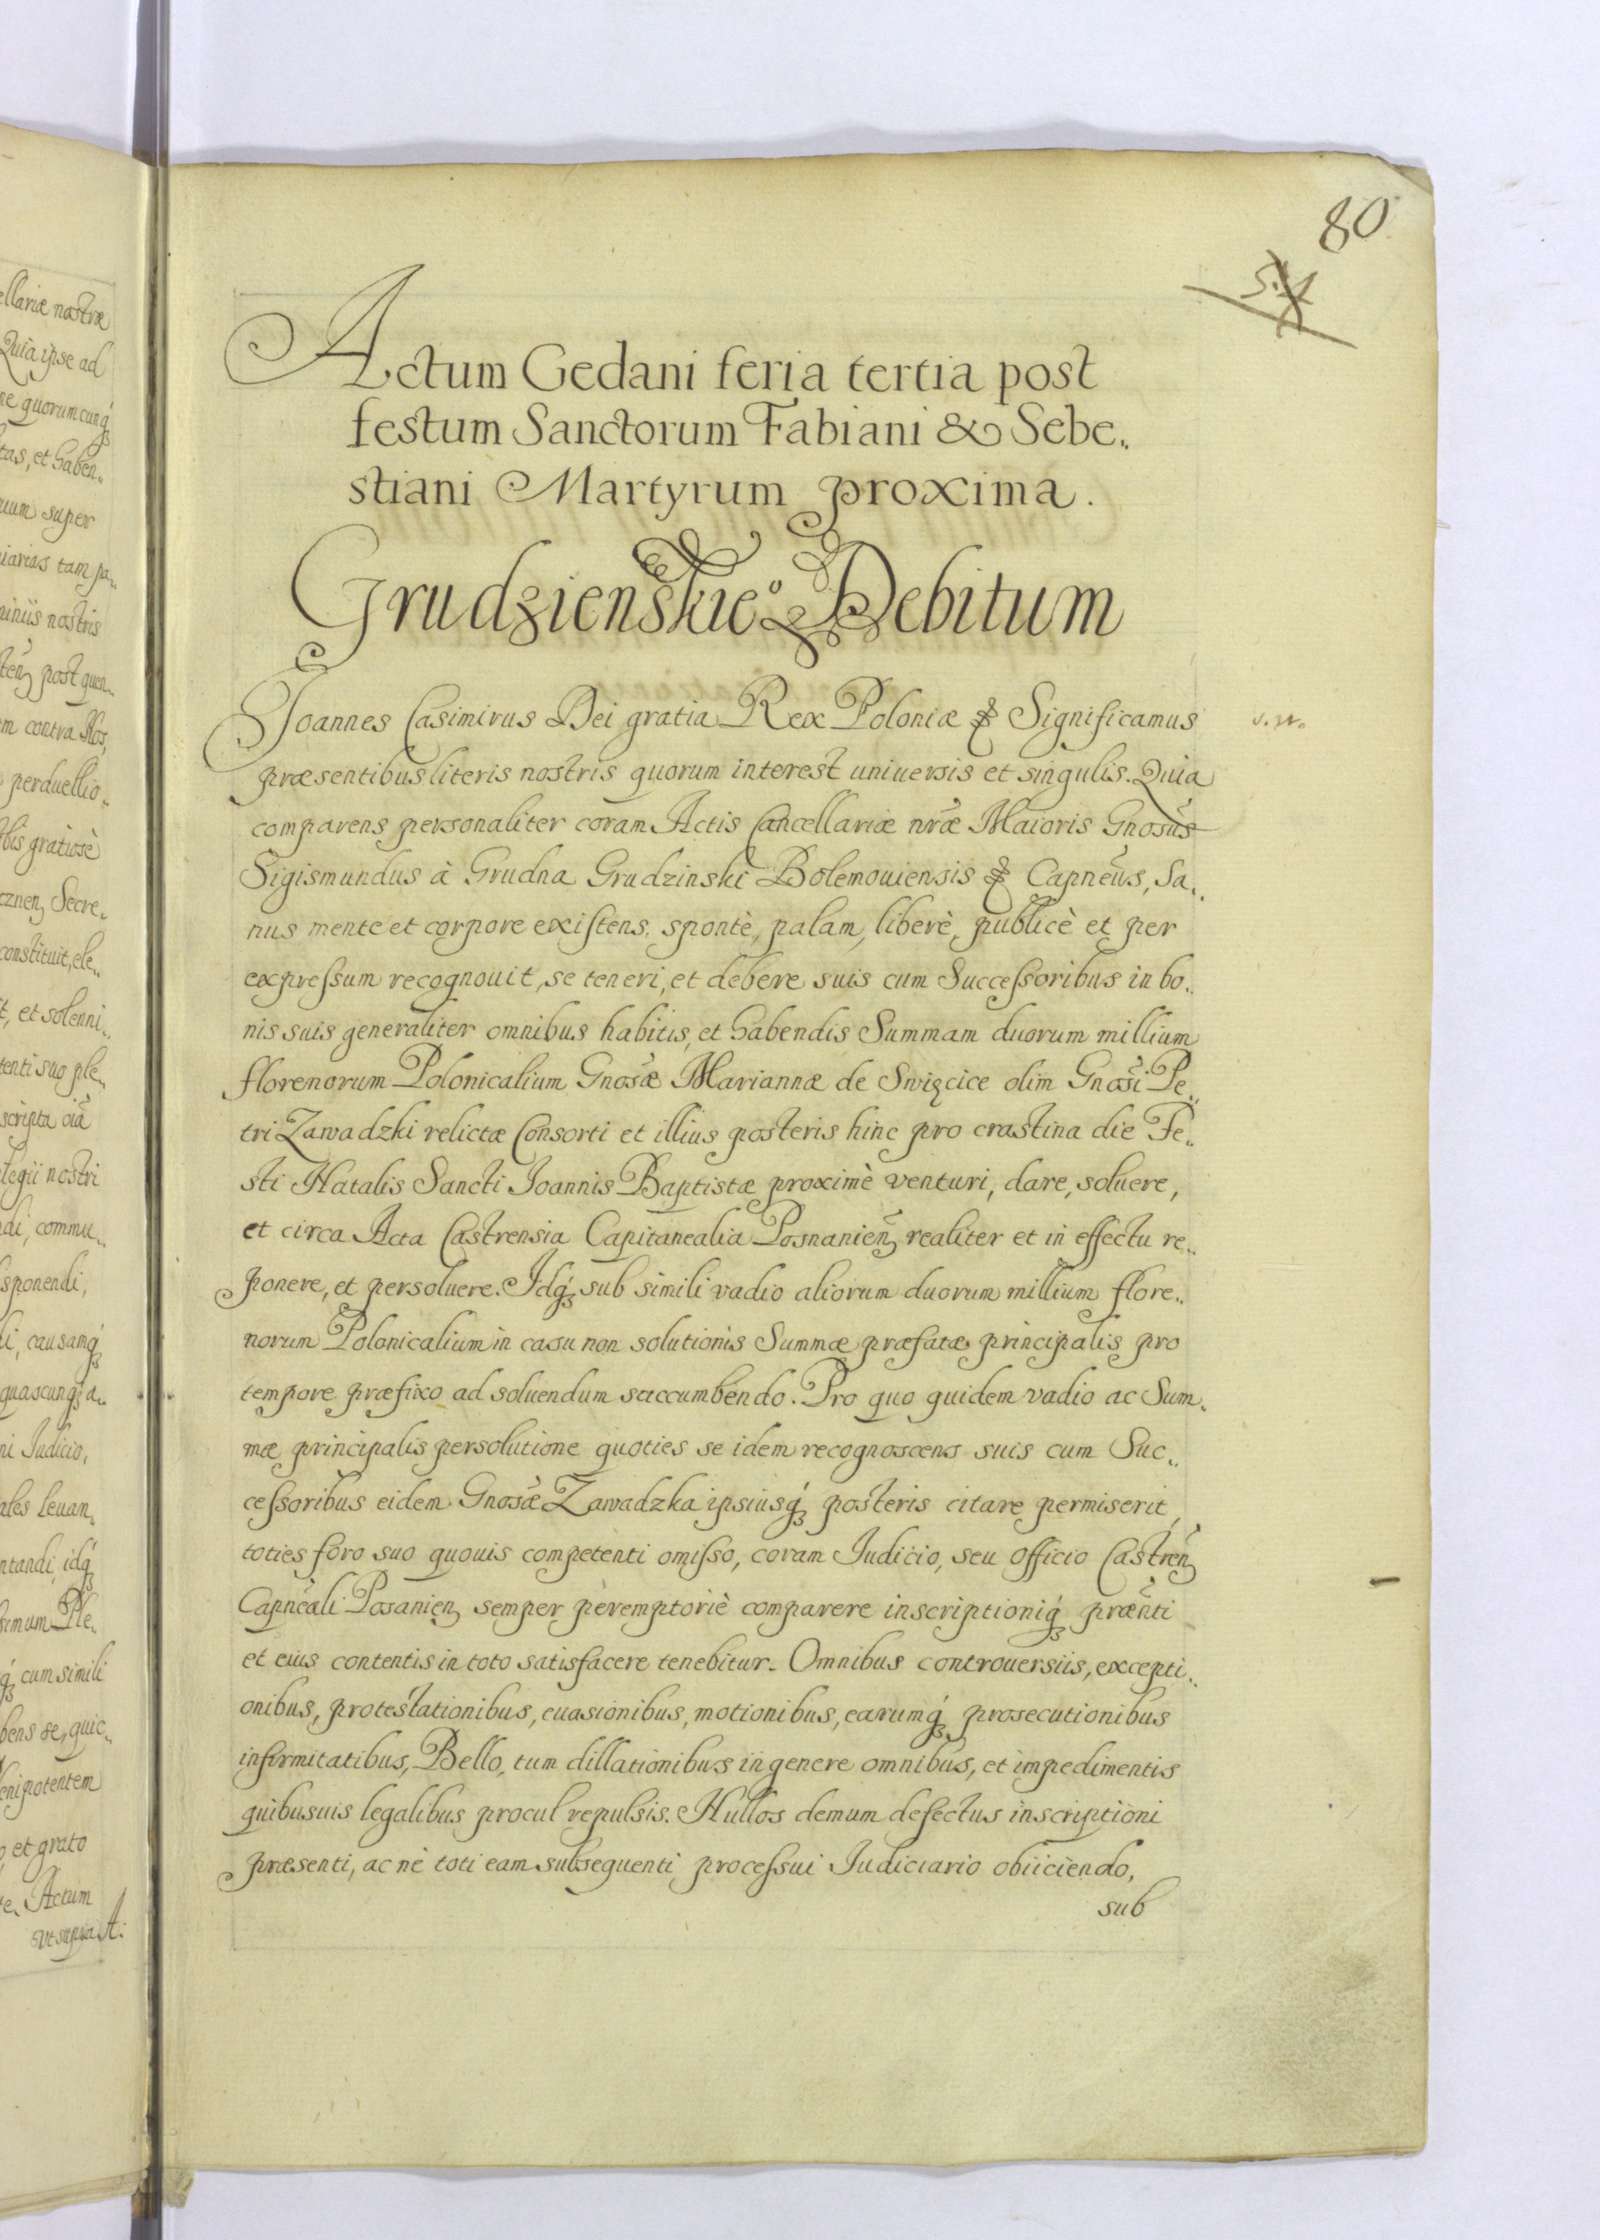 ellariæ nostræ
Quia ipse ad
ne quorumcunq́
tas, et haben„
uum super
iarias tam pa„
iniis nostris
post quen„
m contra Nos,
perduellio„
bis gratiosè
cznen Secre„
constituit, ele„
t, et solenni„
tenti suo ple„
scripta oiā
legii nostri
di, commu„
sponendi,
li, causamq́
quascunq́ a„
ni Iudicio,
ales leuan„
ntandi, idq́
simum Ple„
q́ cum simili
bens se, quic„
enipotentem
et grato
Actum
vt supra
80
Actum Gedani feria tertia post
festum Sanctorum Fabiani & Sebe„
stiani Martyrum proxima.
Grudzienskie° Debitum
Joannes Casimirus Dei gratia Rex Poloniæ & Significamus
præsentibus literis nostris quorum interest uniuersis et singulis. Quia
comparens personaliter coram Actis Cancellariæ nr̃æ Maioris Gnosus̃
Sigismundus à Grudna Grudzinski Bolemouiensis & Capneũs, Sa„
nus mente et corpore existens, spontè, palam, liberè, publicè et per
expressum recognouit, se teneri, et debere suis cum Successoribus in bo„
nis suis generaliter omnibus habitis, et habendis Summam duorum millium
florenorum Polonicalium Gnosæ̃ Mariannæ de Swięcice olim Gnosĩ Pe„
tri Zawadzki relictæ Consorti et illius posteris hinc pro crastina die Fe„
sti Natalis Sancti Joannis Baptistæ proximè venturi, dare, soluere,
et circa Acta Castrensia Capitanealia Posnanieñ realiter et in effectu re„
ponere, et persoluere. Idq́ sub simili vadio aliorum duorum millium flore„
norum Polonicalium in casu non solutionis Summæ præfatæ principalis pro
tempore præfixo ad soluendum succumbendo. Pro quo quidem vadio ac Sum„
mæ principalis persolutione quoties se idem recognoscens suis cum Suc„
cessoribus eidem Gnosæ̃ Zawadzka ipsiusq́ posteris citare permiserit,
toties foro suo quouis competenti omisso, coram Iudicio, seu officio Castreñ
Capneãli Posanien semper peremptoriè comparere inscriptioniq́ præñti
et eius contentis in toto satisfacere tenebitur. Omnibus controuersiis, excepti„
onibus, protestationibus, euasionibus, motionibus, earumq́ prosecutionibus
infirmitatibus, Bello, tum dillationibus in genere omnibus, et impedimentis
quibusuis legalibus procul repulsis. Nullos demum defectus inscriptioni
præsenti, ac nè toti eam subsequenti processui Iudiciario obiiciendo,
sub